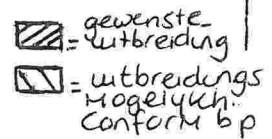 gewenste
= uitbreiding
= uitbreidings
mogelijkh.
conform bp